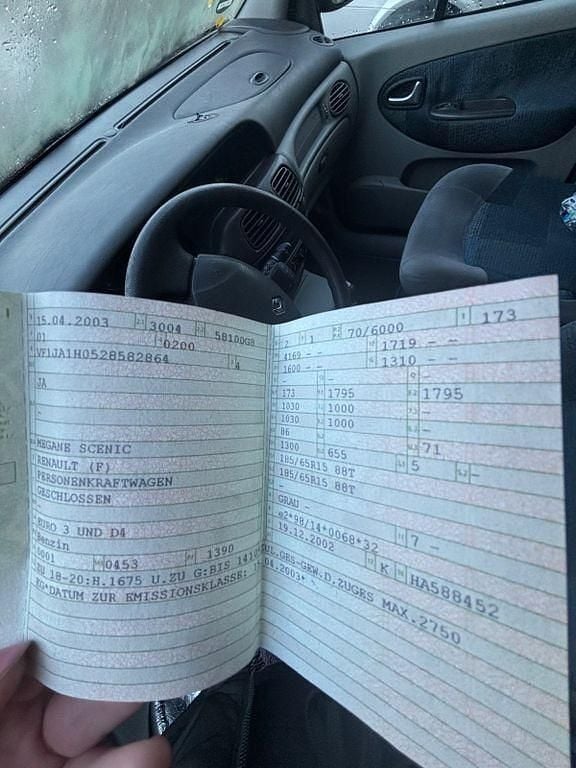 15.04.2003 3004 5810DGS
01 0200
VF1JA1H0528582864 4
JA
-
-
MEGANE SCENIC
RENAULT (F)
PERSONENKRAFTWAGEN
GESCHLOSSEN
EURO 3 UND D4
Benzin
0001 0453 1390
ZU 18-20:H.1675 U.ZU G:BIS 1410*
EG*DATUM ZUR EMISSIONSKLASSE:
2 1 70/6000 173
4169 - - 1719 - -
1600 - - 1310 - -
- - -
173 1795 1795
1030 1000 -
1030 1000 -
86
1300 655 71
185/65R15 88T 5 -
185/65R15 88T
-
GRAU -
e2*98/14*0068*32 7 -
19.12.2002 K HA588452
ZUL.GES-GEW.D.ZUGES MAX.2750
.04.2003*